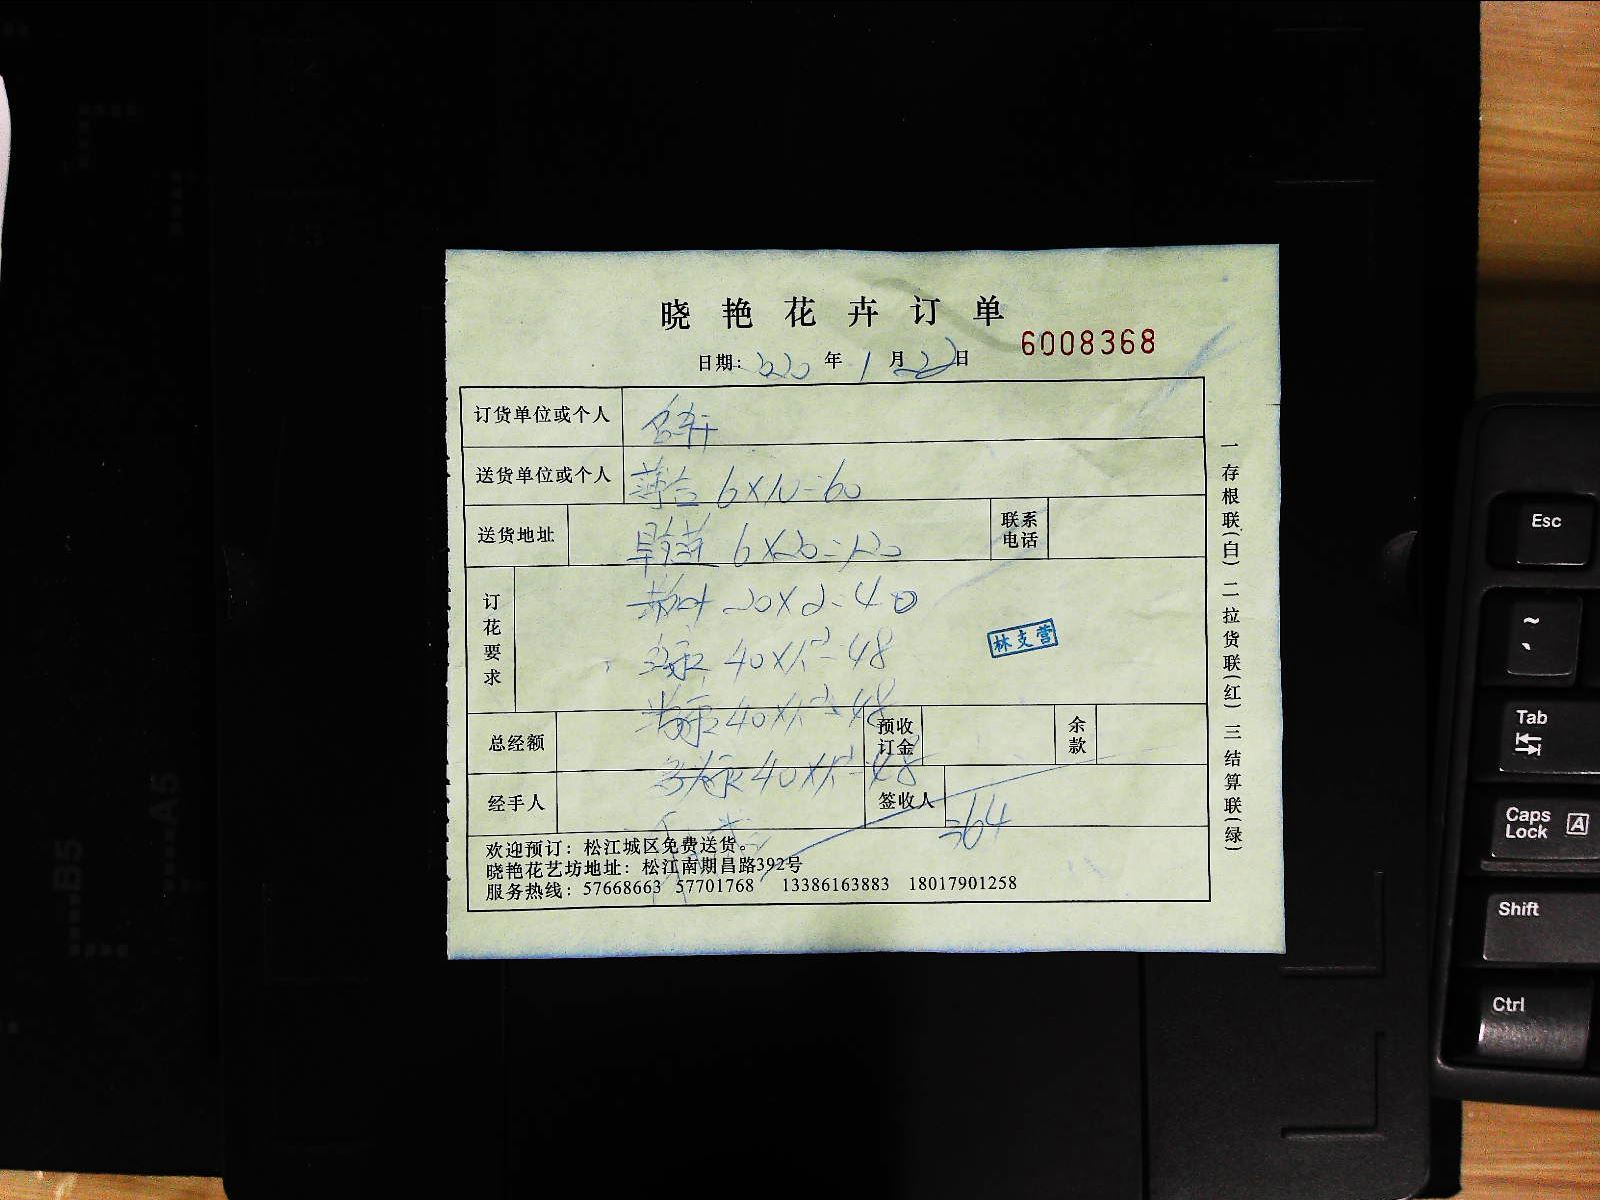 晓艳花卉订单
6008368
日期: 2020 年 1 月 22 日
订货单位或个人
送货单位或个人 6×10=60
送货地址 6×20=120 联系电话
订花要求 20×2=40
40×1.2=48
林支营
40×1.2=48
总经额 预收订金 余款
40×1.2=48
经手人 签收人
364
欢迎预订：松江城区免费送货。
晓艳花艺坊地址：松江南期昌路392号
服务热线：57668663 57701768 13386163883 18017901258
一存根联(白) 二拉货联(红) 三结算联(绿)
B5
A5
Esc
~
Tab
Caps Lock
A
Shift
Ctrl